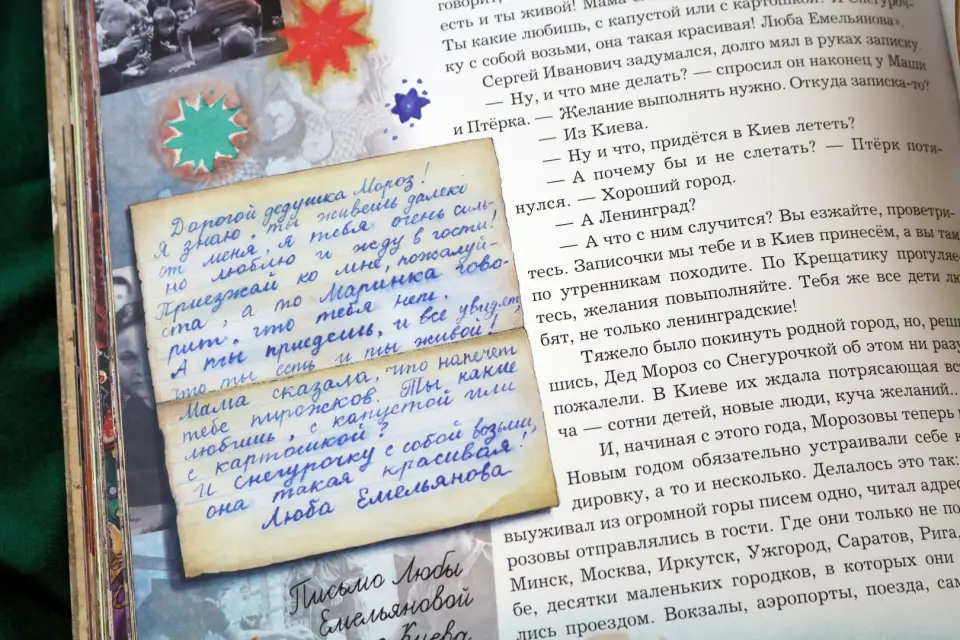 Дорогой дедушка Мороз!
Я знаю, ты живешь далеко
от меня, я тебя очень силь-
но люблю и жду в гости!
Приезжай ко мне, пожалуй-
ста, а то Маринка гово-
рит, что тебя нет.
А ты приедешь, и все увидят,
что ты есть и ты живой!
Мама сказала, что напечет
тебе пирожков. Ты какие
любишь, с капустой или
с картошкой?
И Снегурочку с собой возьми,
она такая красивая!
Люба Емельянова
Письмо Любы
Емельяновой
Киева
говорит,
есть и ты живой! Мама
Ты какие любишь, с капустой или с картошкой? И Снегуроч-
ку с собой возьми, она такая красивая! Люба Емельянова».
Сергей Иванович задумался, долго мял в руках записку.
— Ну, и что мне делать? — спросил он наконец у Маши
и Птёрка. — Желание выполнять нужно. Откуда записка-то?
— Из Киева.
— Ну и что, придётся в Киев лететь?
— А почему бы и не слетать? — Птёрк потя-
нулся. — Хороший город.
— А Ленинград?
— А что с ним случится? Вы езжайте, проветри-
тесь. Записочки мы тебе и в Киев принесём, а вы там
по утренникам походите. По Крещатику прогуляе
тесь, желания повыполняйте. Тебя же все дети лю
бят, не только ленинградские!
Тяжело было покинуть родной город, но, реш
шись, Дед Мороз со Снегурочкой об этом ни разу
пожалели. В Киеве их ждала потрясающая вс
ча — сотни детей, новые люди, куча желаний..
И, начиная с этого года, Морозовы теперь
Новым годом обязательно устраивали себе к
дировку, а то и несколько. Делалось это так:
выуживал из огромной горы писем одно, читал адрес
розовы отправлялись в гости. Где они только не по
Минск, Москва, Иркутск, Ужгород, Саратов, Рига,
бе, десятки маленьких городков, в которых они
лись проездом. Вокзалы, аэропорты, поезда, сам